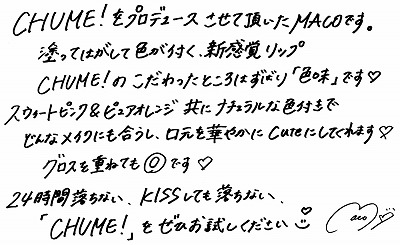 CHUME!をプロデュースさせて頂いたMACOです。
塗ってはがして色が付く、新感覚リップ
CHUME!のこだわったところはずばり「色味」です♡
スウィートピンク&ピュアオレンジ 共にナチュラルな色付きで
どんなメイクにも合うし、口元を華やかにcuteにしてくれます♡
グロスを重ねても◎です♡
24時間落ちない、KISSしても落ちない、
「CHUME!」をぜひお試しください♡
Maco